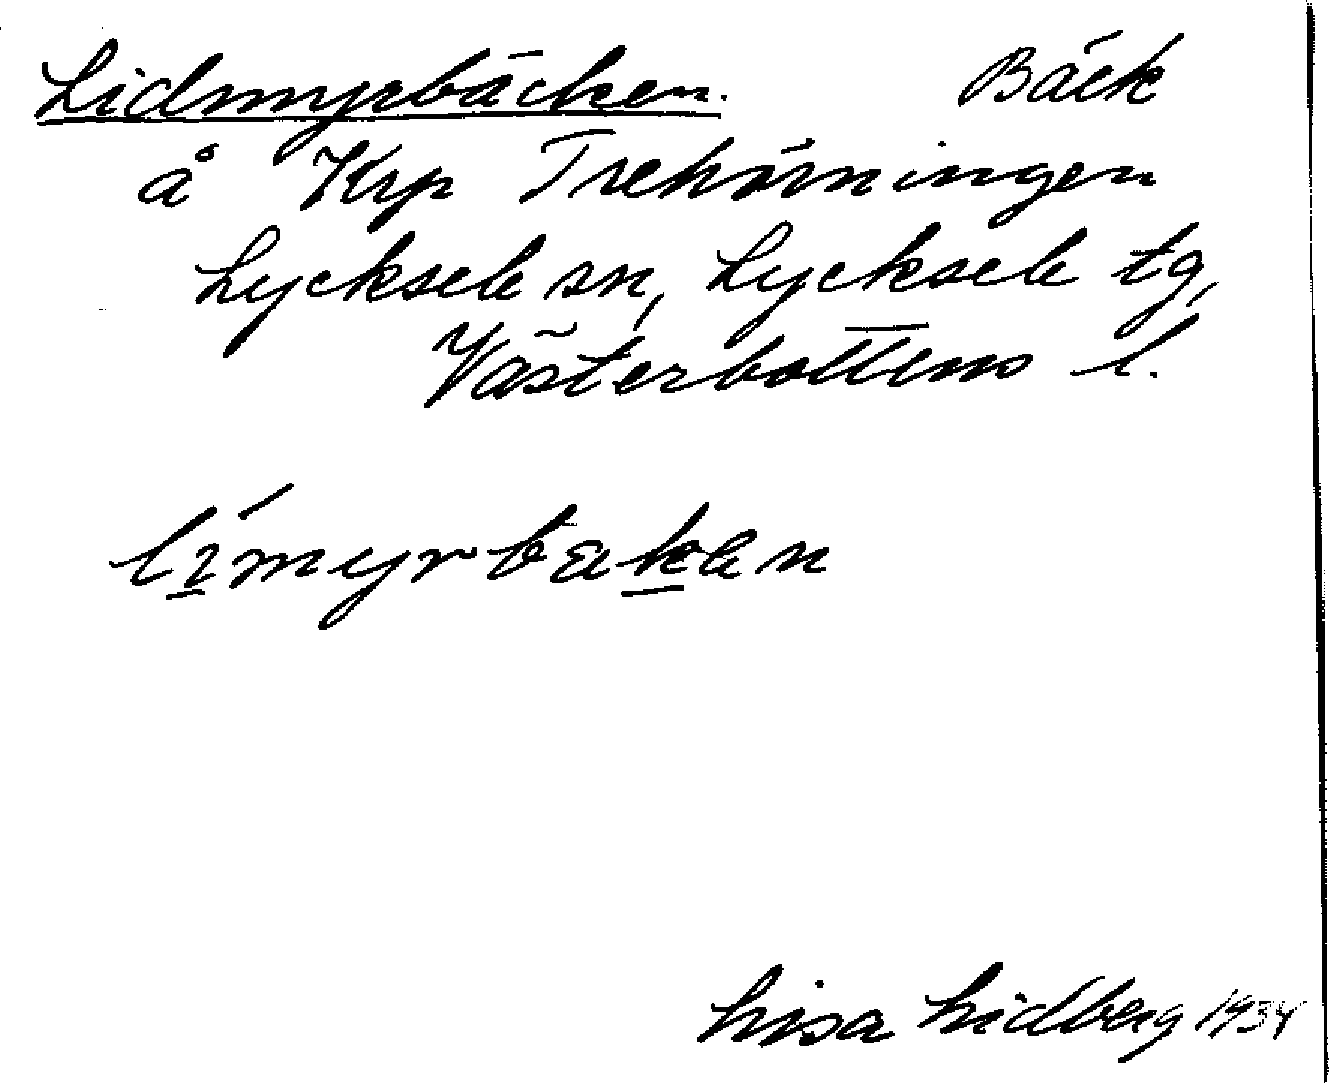 Lidmyrbäcken. Bäck
å Krp Trehörningen
Lycksele sn, Lycksele tg,
Västerbottens l.
límyrbækan
Lisa Lidberg 1934